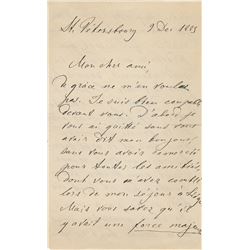 St. Pétersbourg 9 Dec 1885
Mon cher ami,
De grâce ne m'en voulez
pas. Je suis bien coupable
devant vous. D'abord je
vous ai quitté sans vous
avoir dit mon bonjour,
sans vous avoir remercié
pour toutes les amitiés,
dont vous m'avez comblé
lors de mon séjour à
Mais vous savez qu'il
y avait une force majeure